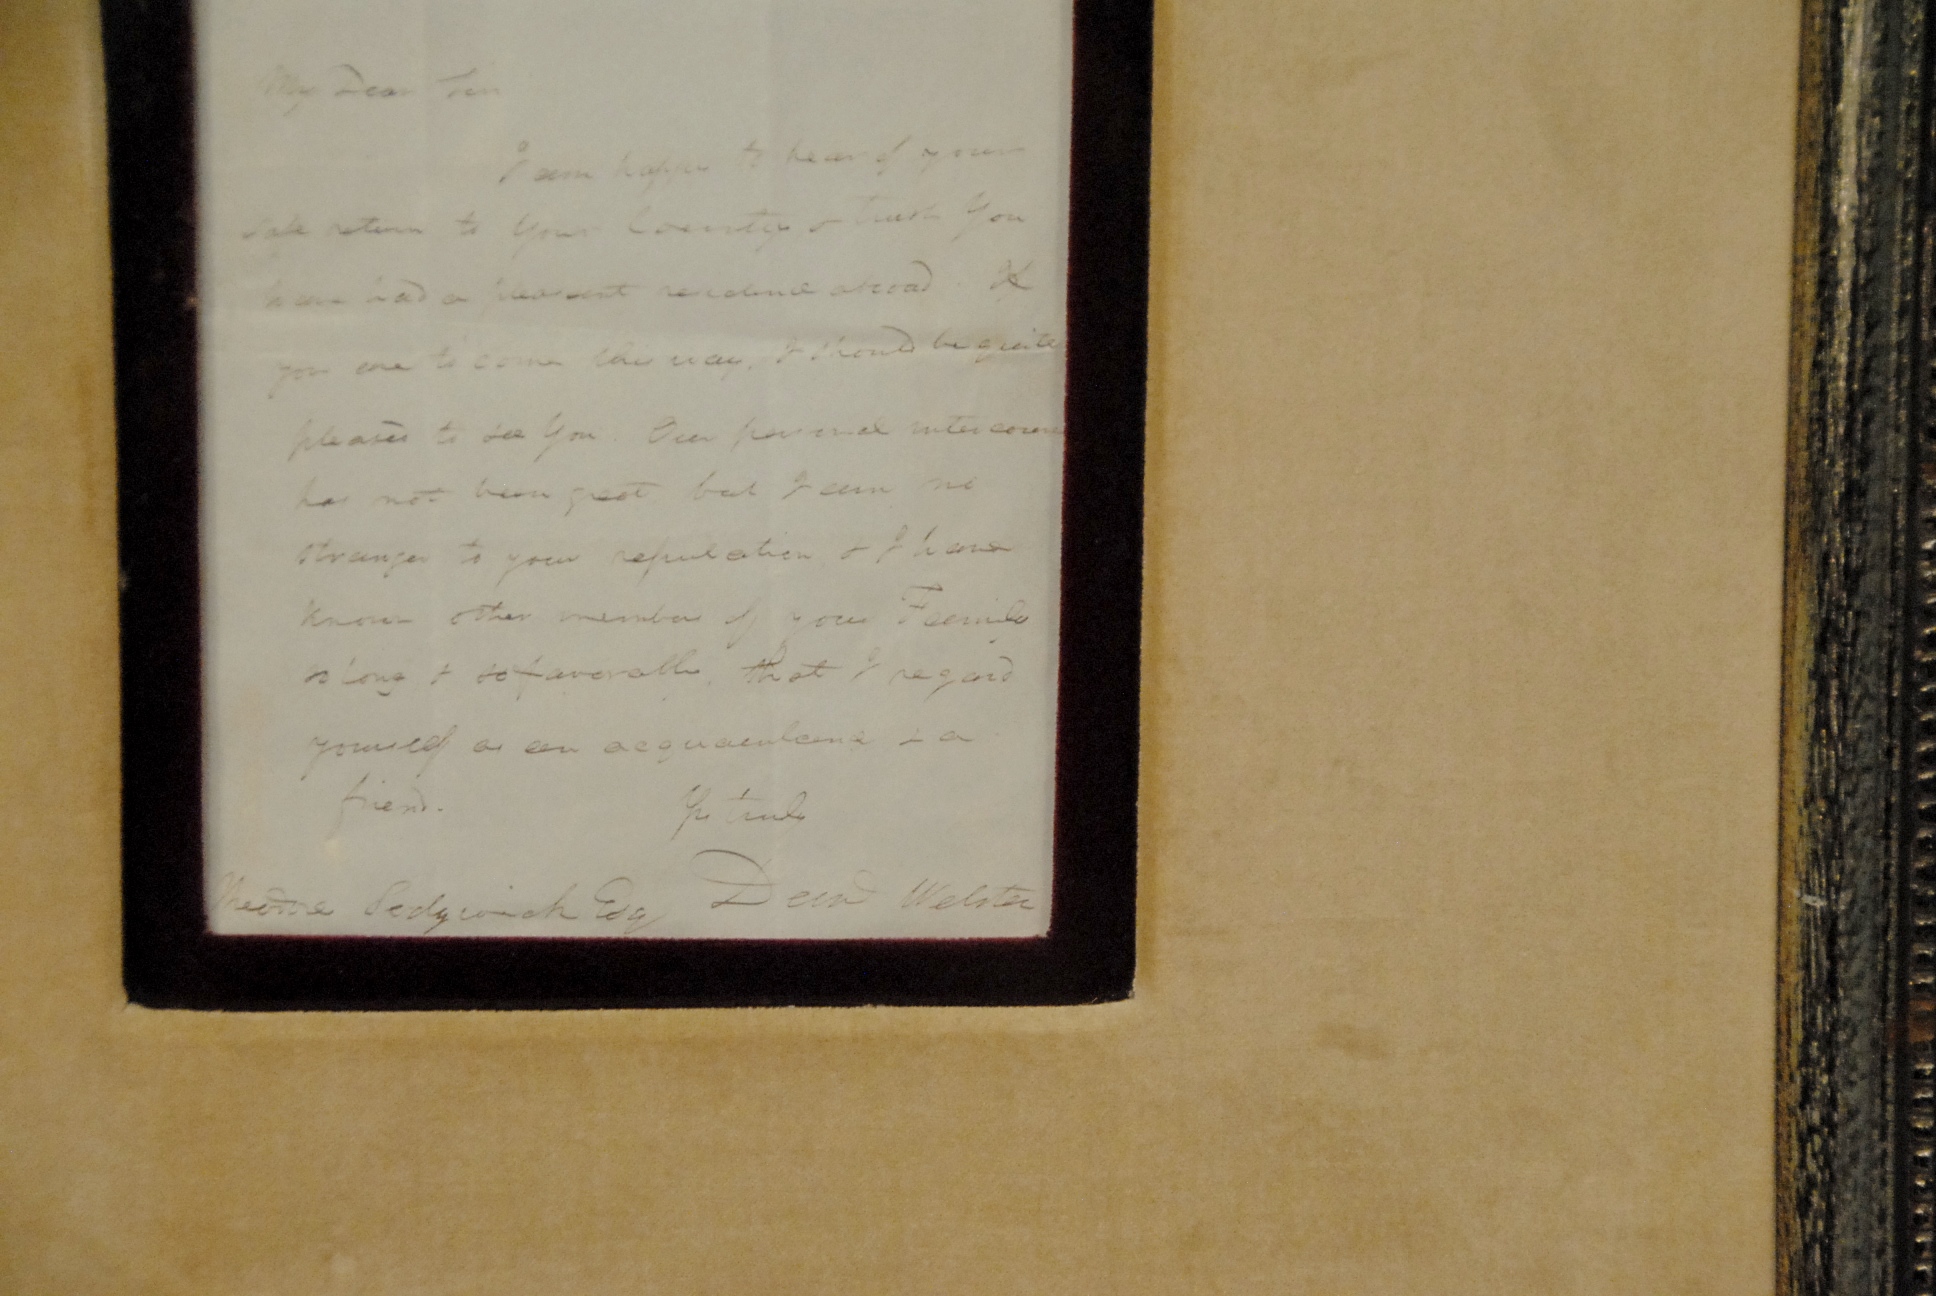 My Dear Sir
I am happy to hear of your
safe return to your Country & trust you
have had a pleasant residence abroad. If
you are to come this way, I should be quite
pleased to see you. Our personal intercourse
has not been great, but I am no
stranger to your reputation, & I have
known other members of your Family
so long & so favorably, that I regard
yourself as an acquaintance & a
friend. Yrs truly
Theodore Sedgwick Esq Danl Webster